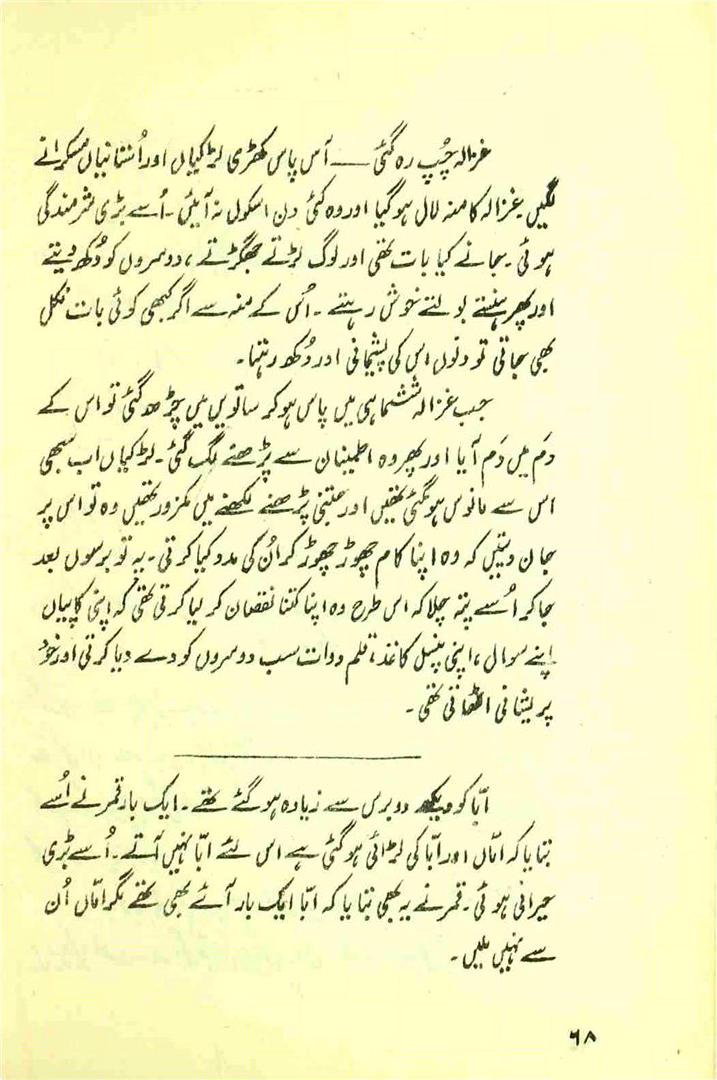 غزالہ چُپ رہ گئی — آس پاس کھڑی لڑکیاں اور اُستانیاں مسکرانے
لگیں۔ غزالہ کا منہ لال ہو گیا اور وہ کئی دن اسکول نہ آئی۔ اُسے بڑی شرمندگی
ہوئی۔ جانے کیا بات تھی اور لوگ لڑتے جھگڑتے، دوسروں کو دُکھ دیتے
اور پھر ہنستے بولتے خوش رہتے۔ اُس کے منہ سے اگر کبھی کوئی بات نکل
بھی جاتی تو دنوں اس کی پشیمانی اور دُکھ رہتا۔
جب غزالہ ششماہی میں پاس ہو کر ساتویں میں چڑھ گئی تو اس کے
دَم میں دَم آیا اور پھر وہ اطمینان سے پڑھنے لگ گئی۔ لڑکیاں اب سبھی
اس سے مانوس ہو گئی تھیں اور جتنی پڑھنے لکھنے میں کمزور تھیں وہ تو اس پر
جان دیتیں کہ وہ اپنا کام چھوڑ چھوڑ کر اُن کی مدد کیا کرتی۔ یہ تو برسوں بعد
جا کر اُسے پتہ چلا کہ اس طرح وہ اپنا کتنا نقصان کر لیا کرتی تھی کہ اپنی کاپیاں
اپنے سوال، اپنی پنسل کاغذ، قلم دوات سب دوسروں کو دے دیا کرتی اور خود
پریشانی اٹھاتی تھی۔
ابّا کو دیکھے دو برس سے زیادہ ہو گئے تھے۔ ایک بار قمر نے اُسے
بتایا کہ امّاں اور ابّا کی لڑائی ہو گئی ہے اس لئے ابّا نہیں آتے۔ اُسے بڑی
حیرانی ہوئی۔ قمر نے یہ بھی بتایا کہ ابّا ایک بار آئے بھی تھے مگر امّاں اُن
سے نہیں ملیں۔
۶۸